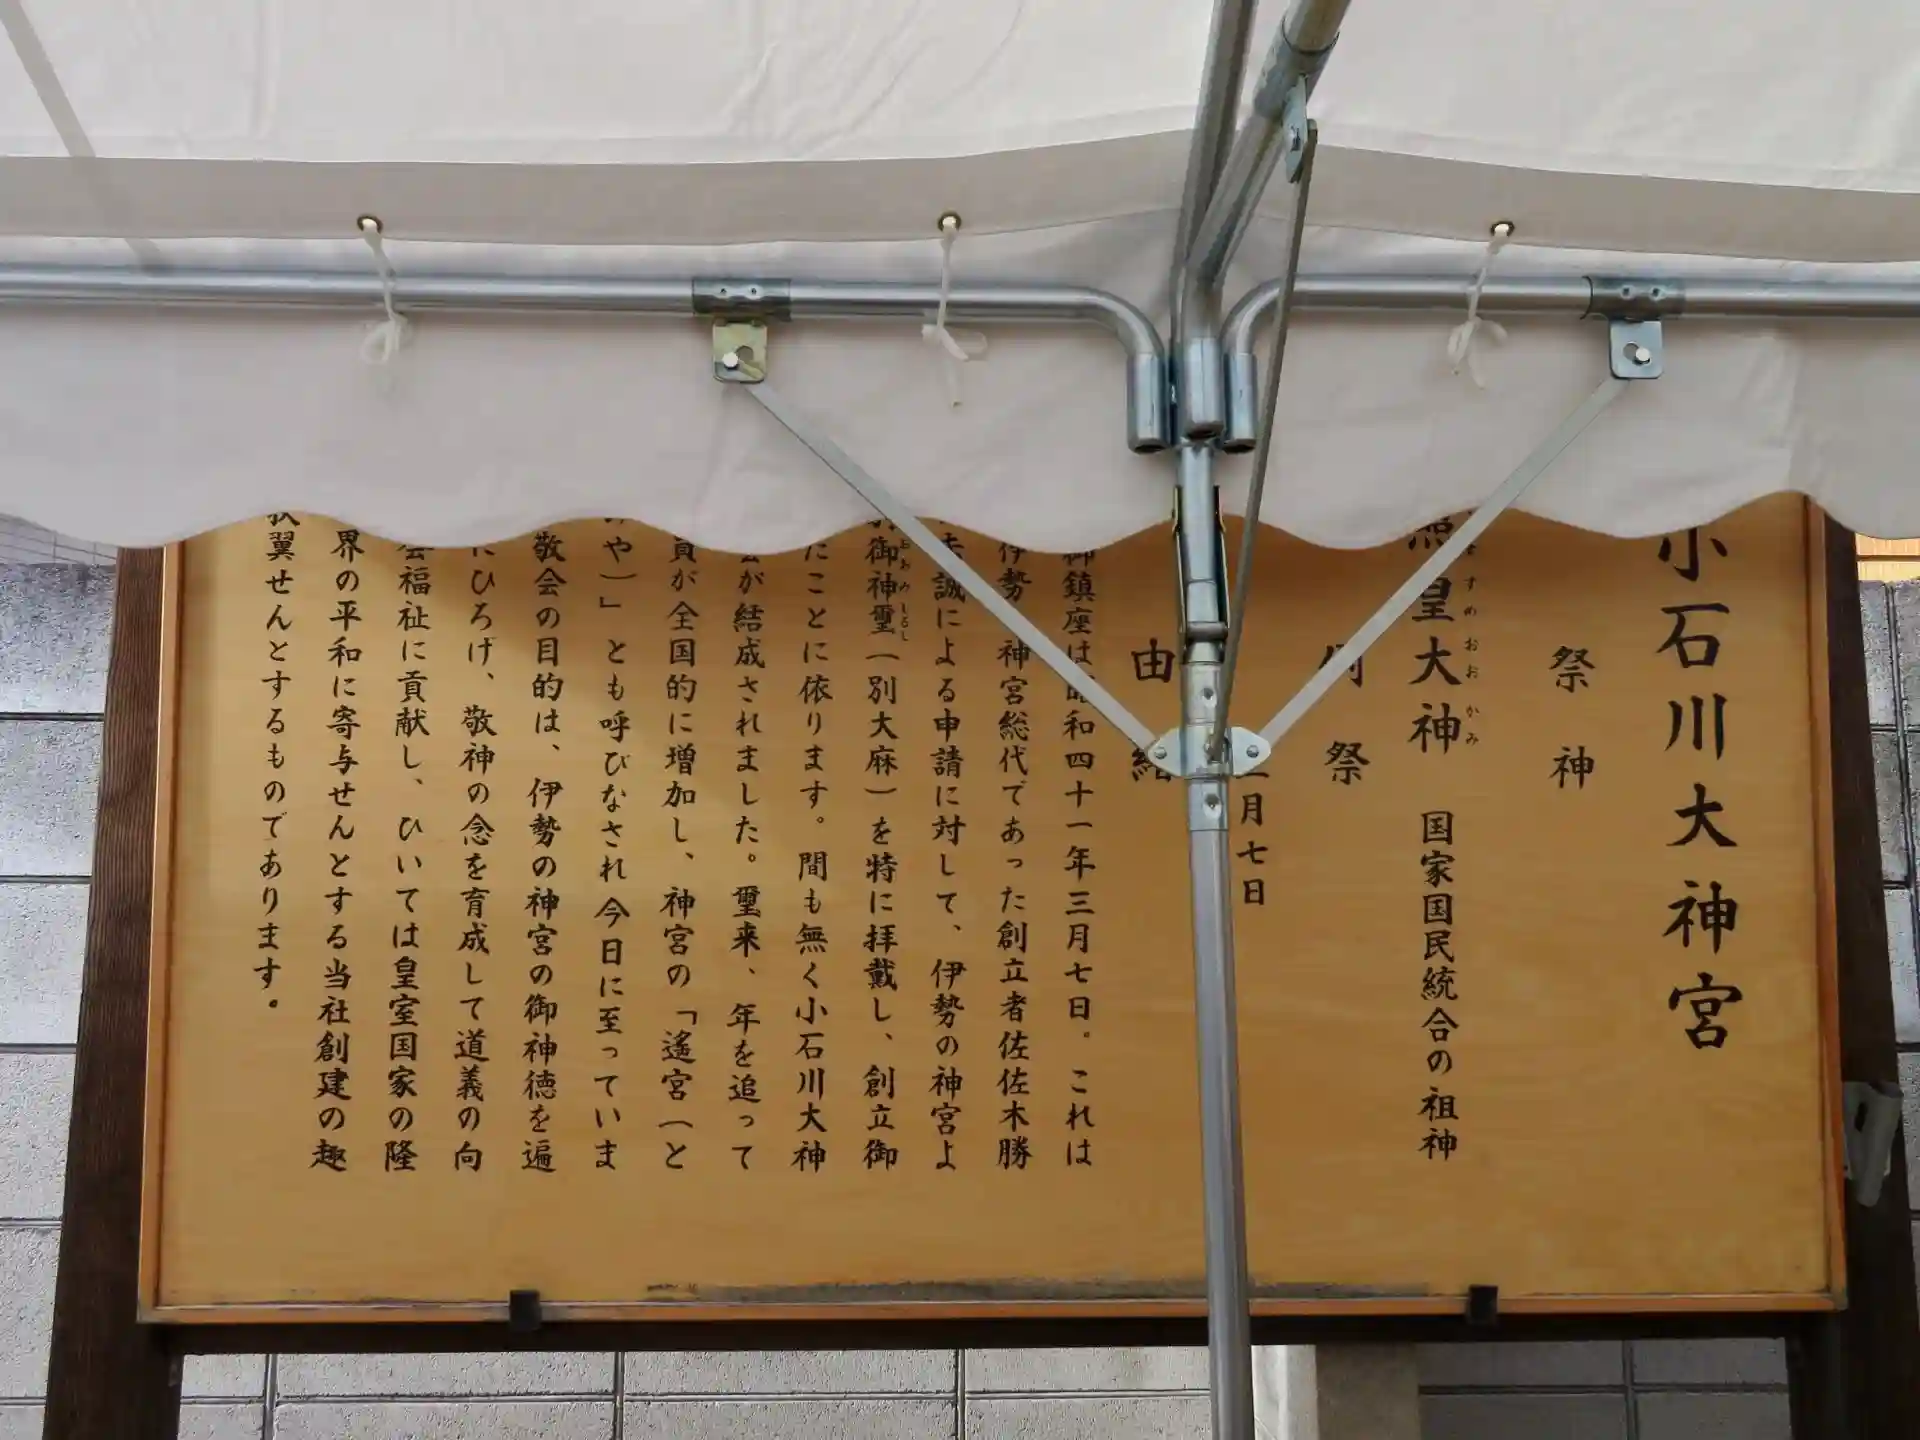 小石川大神宮
祭神
皇大神 国家国民統合の祖神
すめおおかみ
例祭
月七日
由緒
御鎮座は昭和四十一年三月七日。これは
伊勢 神宮総代であった創立者佐佐木勝
誠による申請に対して、伊勢の神宮よ
御神璽(別大麻)を特に拝戴し、創立御
おおみしるし
たことに依ります。間も無く小石川大神
が結成されました。璽来、年を追って
員が全国的に増加し、神宮の「遙宮(と
みや)」とも呼びなされ今日に至っていま
敬会の目的は、伊勢の神宮の御神徳を遍
にひろげ、敬神の念を育成して道義の向
会福祉に貢献し、ひいては皇室国家の隆
界の平和に寄与せんとする当社創建の趣
翼せんとするものであります。